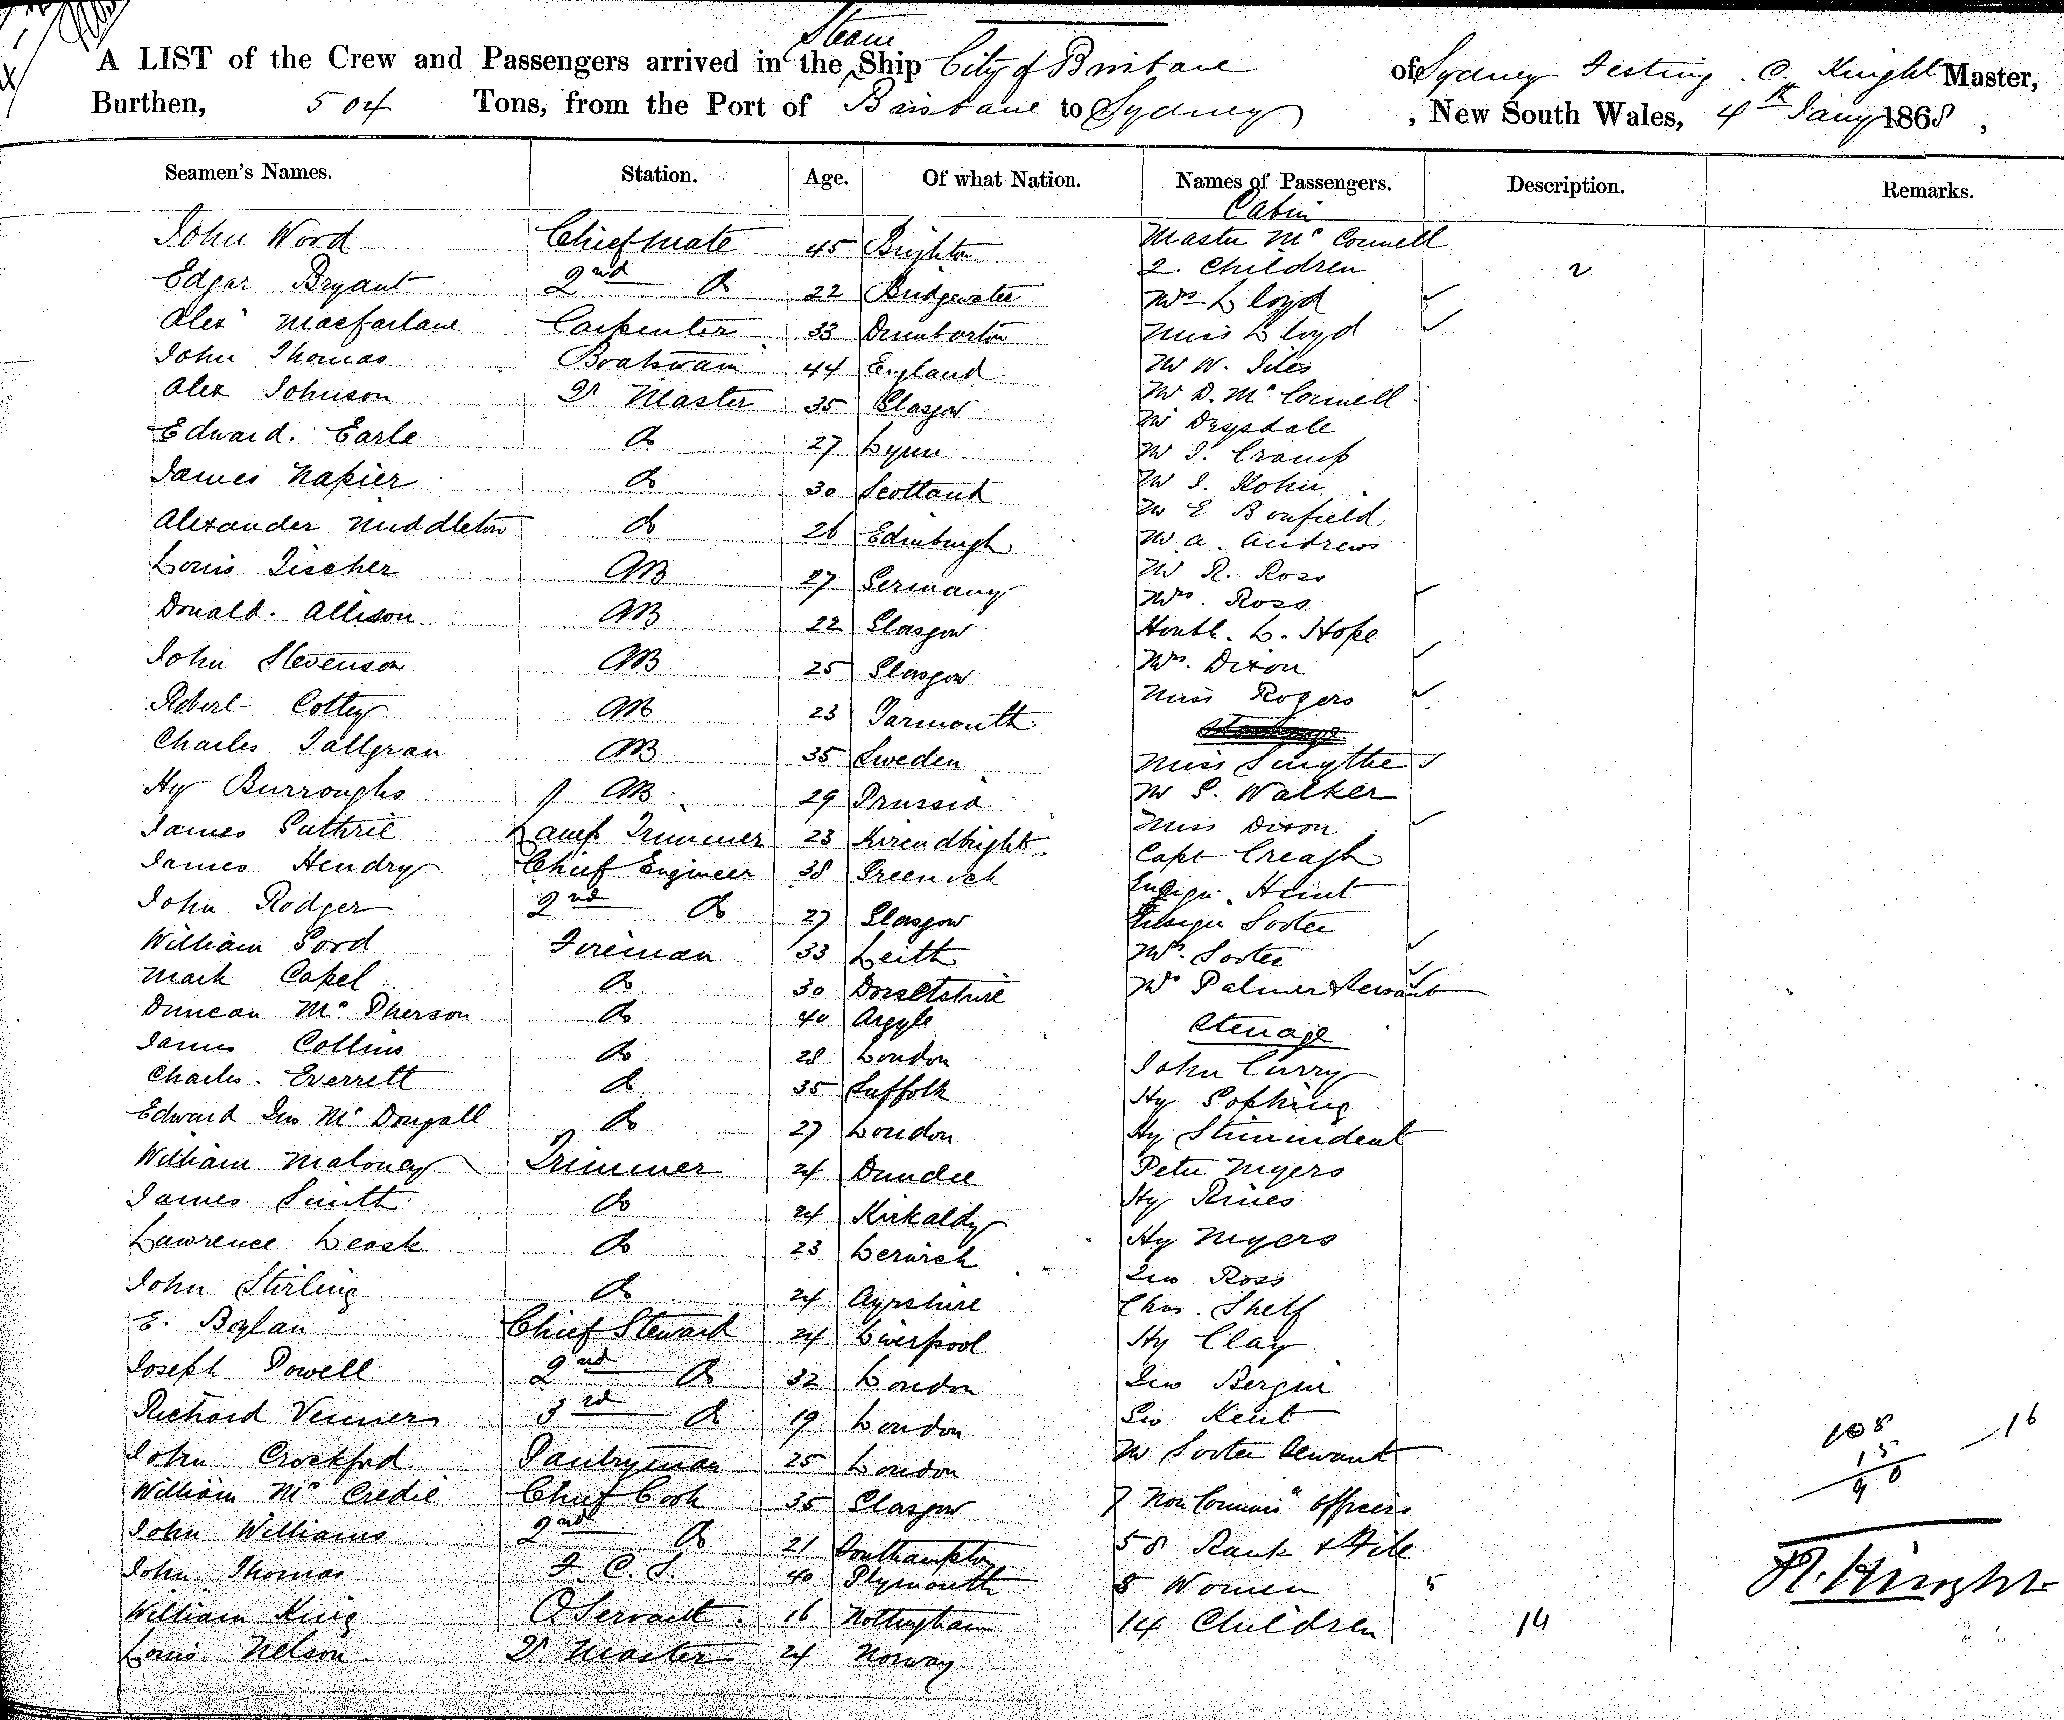 Steam
A LIST of the Crew and Passengers arrived in the Ship City of Brisbane of Sydney Testing . O. Knight Master,
Burthen, 504 Tons, from the Port of Brisbane to Sydney , New South Wales, 4th Jany 1868 ,
Seamen's Names. Station. Age. Of what Nation. Names of Passengers. Description. Remarks.
Cabin
John Word Chief mate 45 Brighton Master McConnell
2. Children 2
Edgar Bryant 2nd Do 22 Bridgewater Mrs Lloyd
Alexr Macfarlane Carpenter 33 Dumbarton Miss Lloyd
John Thomas Boatswain 44 England Mr W. Giles
Alex Johnson Qr Master 35 Glasgow Mr D. McConnell
Mr Drysdale
Edward. Earle Do 27 Lynn Mr J. Cramp
James Napier Do 30 Scotland Mr S. Hohn
Mr E Bonfield
Alexander Middleton do 26 Edinburgh Mr A. Andrews
Louis Fischer AB 27 Germany Mr R. Ross
Mrs. Ross
Donald. Allison AB 22 Glasgow Honbl. L. Hope
John Stevenson AB 25 Glasgow Mrs. Dixon
Robert Cottey AB 23 Yarmouth Miss Rogers
Charles Tallgran AB 35 Sweden Miss Smythe
Hy Burroughs AB 29 Prussia Mr S. Walker
James Guthrie Lamp Trimmer 23 Miss Dixon
James Hendry Chief Engineer 38 Greenock Capt Creagh
Ensign. Hunt
John Rodger 2nd Do 27 Glasgow Ensign Sorter
William Gord Foreman 33 Leith Mrs. Sorter
Mark Capel Do 30 Dorsetshire Mrs Palmer & Servant
Duncan McPherson Do 40 Argyle
Steerage
James Collins Do 28 London John Curry
Charles. Everrett do 35 Suffolk Hy Popking
Edward Geo McDougall Do 27 London Hy
William Maloney Trimmer 24 Dundee Peter Myers
James Smith Do 24 Kirkaldy Hy Rines
Lawrence Leask Do 23 Lerwick Hy Myers
Geo Ross
John Stirling Do 24 Ayrshire Chas. Shelf
E. Boylan Chief Steward 24 Liverpool Hy Clay
Joseph Powell 2nd Do 32 London Geo Bergin
Richard Venners 3rd Do 19 London Geo Kent
John Crockford Pantryman 25 London Mr Sorter Servant
108 16
15
90
William McCredie Chief Cook 35 Glasgow 7 Non Commisd Officers
John Williams 2nd Do 21 Southampton 58 Rank & File
John Thomas F. C. S. 40 Plymouth 5 Women 5
William King O Servant. 16 Nottingham 14 Children 14
Louis Nelson Qr Master 24 Norway
Knight